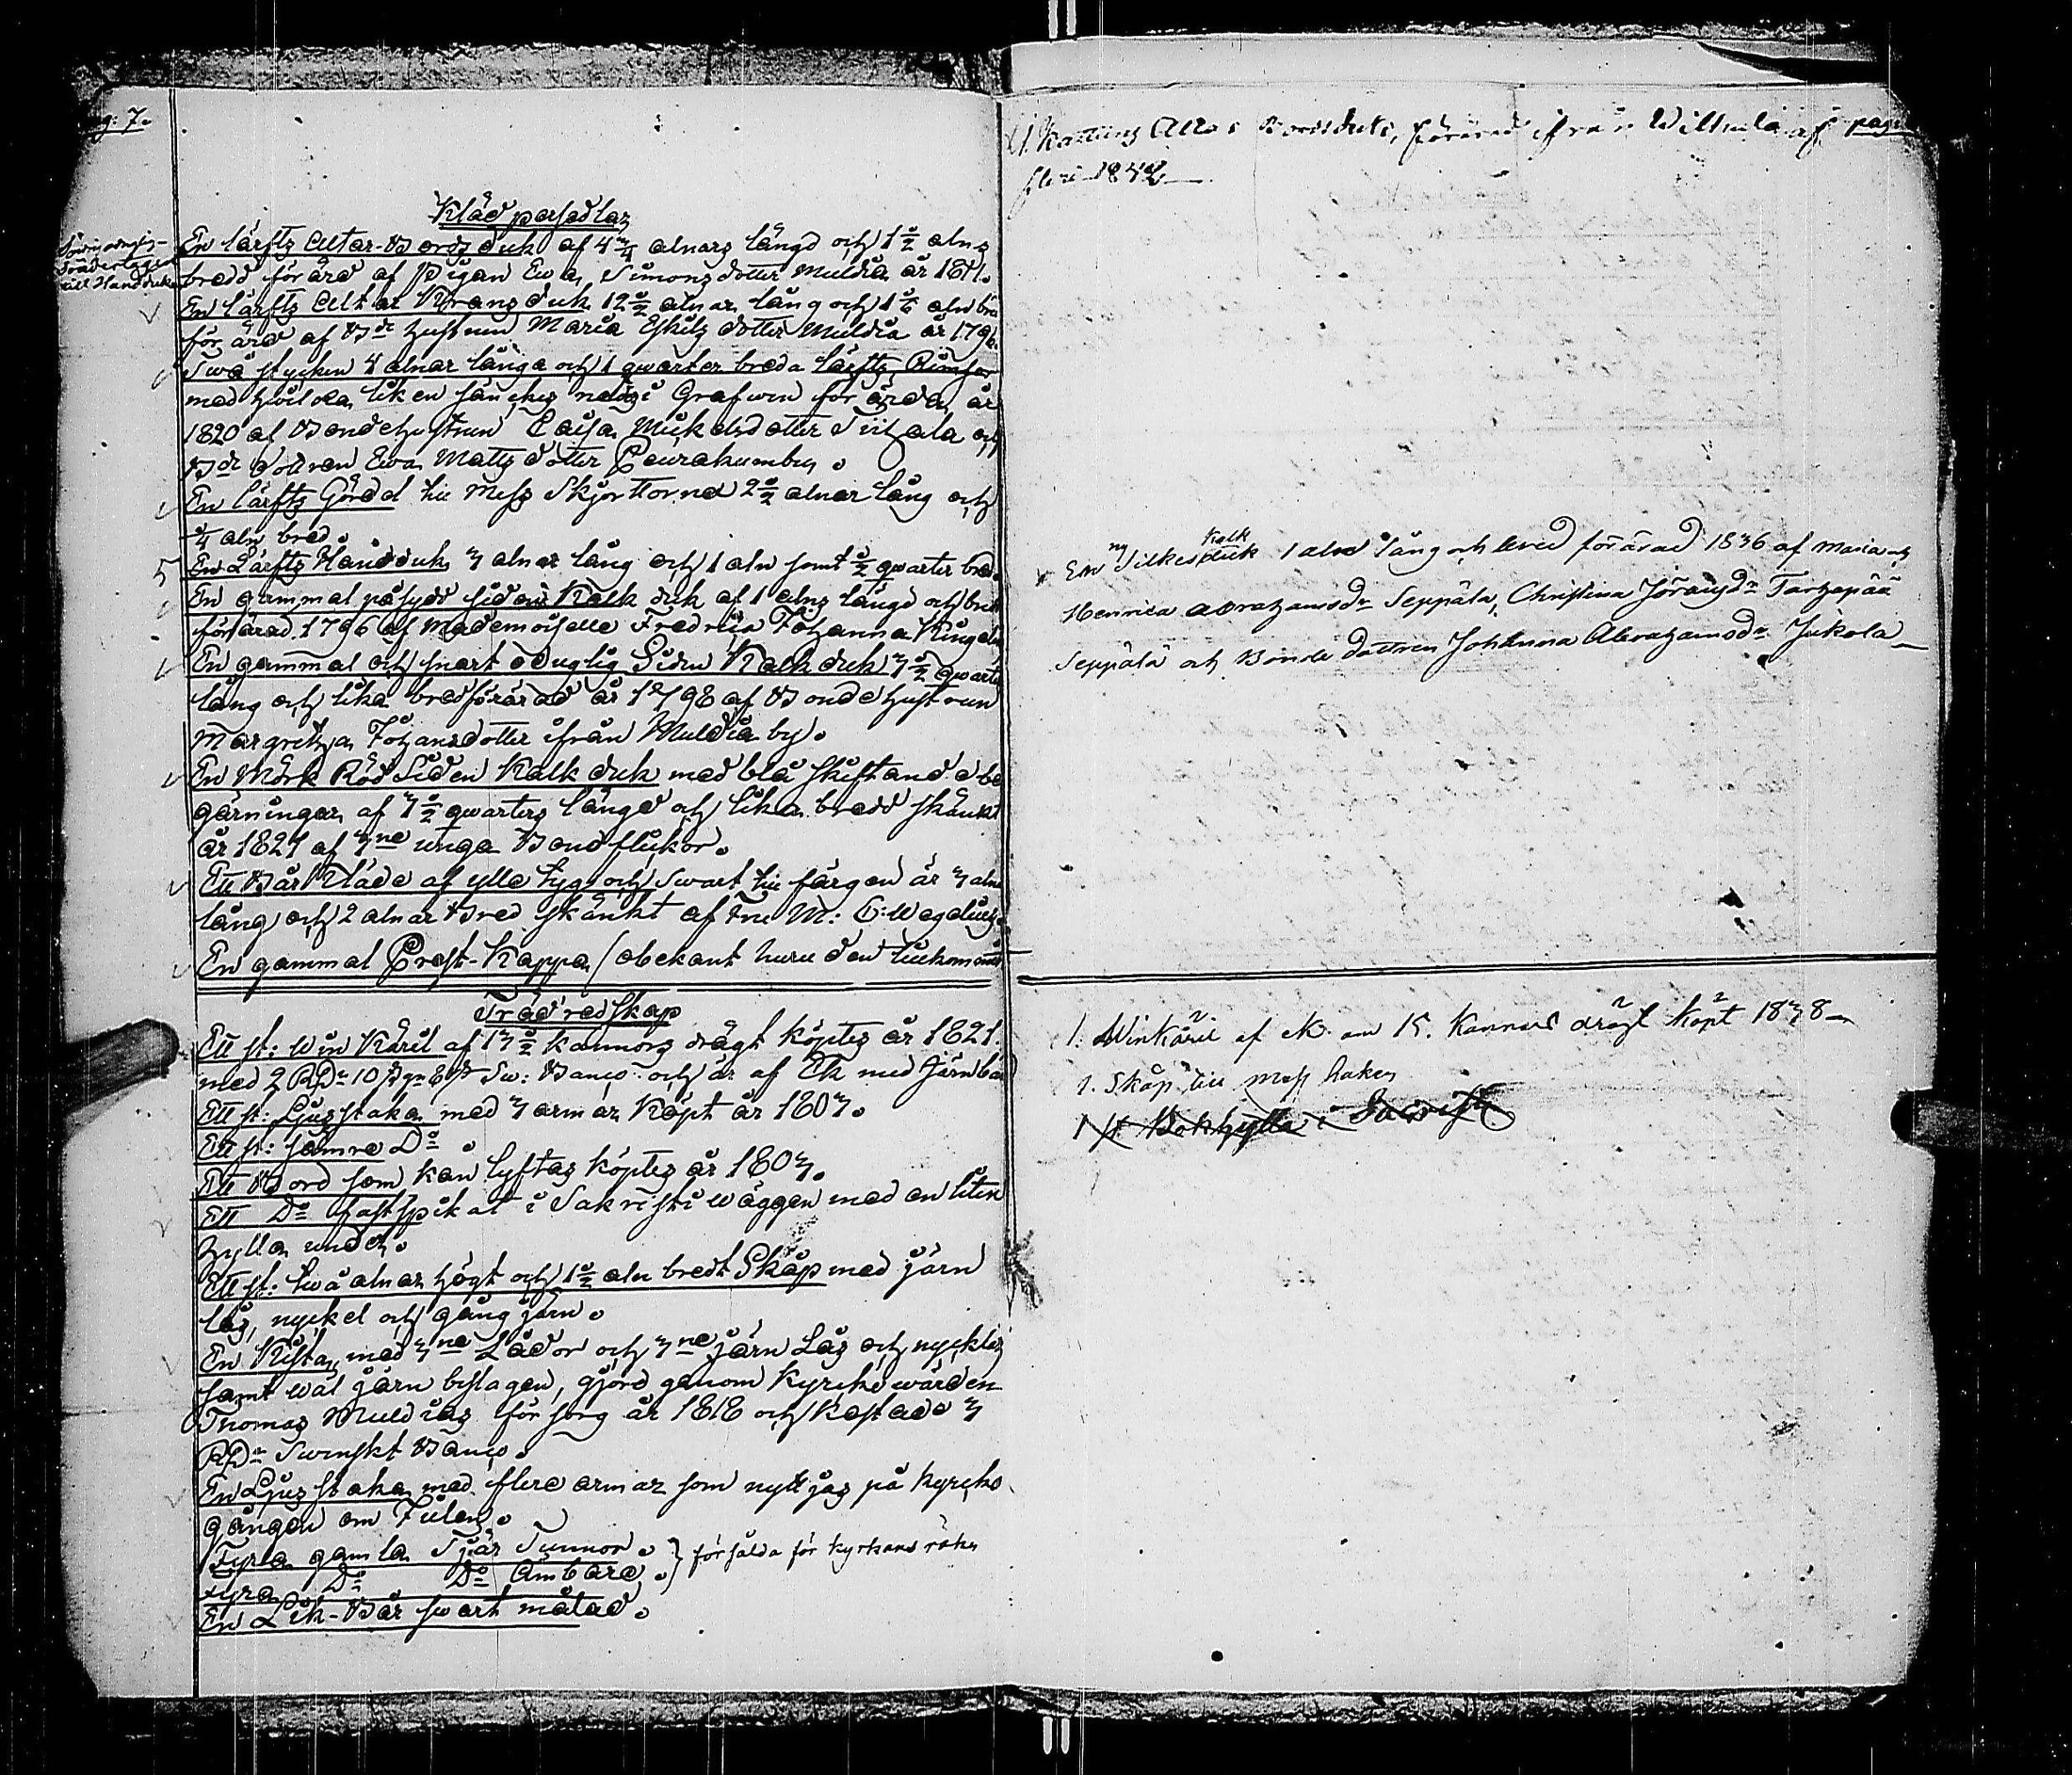 pag: 7.
Klädpersedlar
till Handduken
En lärftz Altar-Bordz duk af 4 3/4 alnars längd och 1 1/2 alns
bredd förärd af Pigan Ewa Simonz dotter Muldia år 1811.
En lärftz Altar Kranz duk 12 1/2 alnar lång och 1 1/6 aln bre
förärd af Bde hustrun Maria Eskilz dotter Muldia år 1796.
Twå stycken 4 alnar långa och 1 qwarter breda lärftz Rimsor
med hwilka liken sänckes ned i Grafwen förärda år
1820 af Bondehustrun Caisa Mickelsdotter Siitala och
Bde dottren Ewa Mattz dotter Peurakumbu.
En lärftz Gördel till Mess Skjortorna 2 1/2 alnar lång och
1/4 aln bred.
5 En Lärftz Handduk 3 alnar lång och 1 aln samt 1/2 qwarter bred.
En gammal påsydd siden Kalk duk af 1 alns längd och bredd
förärad 1796 af Mademoiselle Fredrica Johanna Ringelin
En gammal och snart oduglig Siden Kalk duk 3 1/2 qwarter
lång och lika bred förärad år 1798 af Bondehustrun
Margretha Johansdotter ifrån Muldia by.
En Mörk Röd Siden Kalk duk med blå skiftande be
gärningar af 3 1/2 qwarters längd och lika bredd skänkt
år 1821 af 3ne unga Bondflickor.
Ett Bår Kläde af ylle tyg och Swart till färgen är 3 aln
lång och 2 alnar bred skänkt af Fru M: C: Wegelius.
En gammal Prest-Kappa (obekant huru den tillkommit
Träd redskap
Ett st: Win Käril af 13 1/2 kannors drägt köptes år 1821.
med 2 RDr 10 Sw: Banco och är af Ek med Järnband
Ett st: Ljusstaka med 3 armar Köpt år 1803.
Ett st: sämre Do
Ett Bord som kan lyftas köptes år 1803.
Ett Do fastspikat i Sakristi wäggen med en liten
hylla under.
Ett st: twå alnar högt och 1 1/2 aln bredt Skåp med järn
lås, nyckel och gång järn.
En Kista med 3ne Lådor och 3ne järn Lås och nycklar
samt wäl järn beslagen, gjord genom Kyrckowärden
Thomas Muldias försorg år 1818 och kostade 3
RDr Swenskt Banco.
En Ljus staka med flere armar som nyttjas på Kyrcko
gången om Julen.
Fyra gamla Tjär Tunnor.
} försålda för kyrkans räkn
Fyra Do Do Ämbare.
En Lik-Bår swart målad.
1. Kattuns Altar Bordsduk, förärad ifrån Willula af
flere 1842
En ny Silkes kalk duk 1 aln lång och bred förärad 1836 af Maria och
Henrica Abrahamsdr Seppälä, Christina Jöransdr Tarhapää
Seppälä och Bonde dottren Johanna Abrahamsdr Jukola
1. Winkäril af ek om 15. Kannors drägt köpt 1838
1. Skåp till Mess haken
1 st Bokhylla i Sacrist